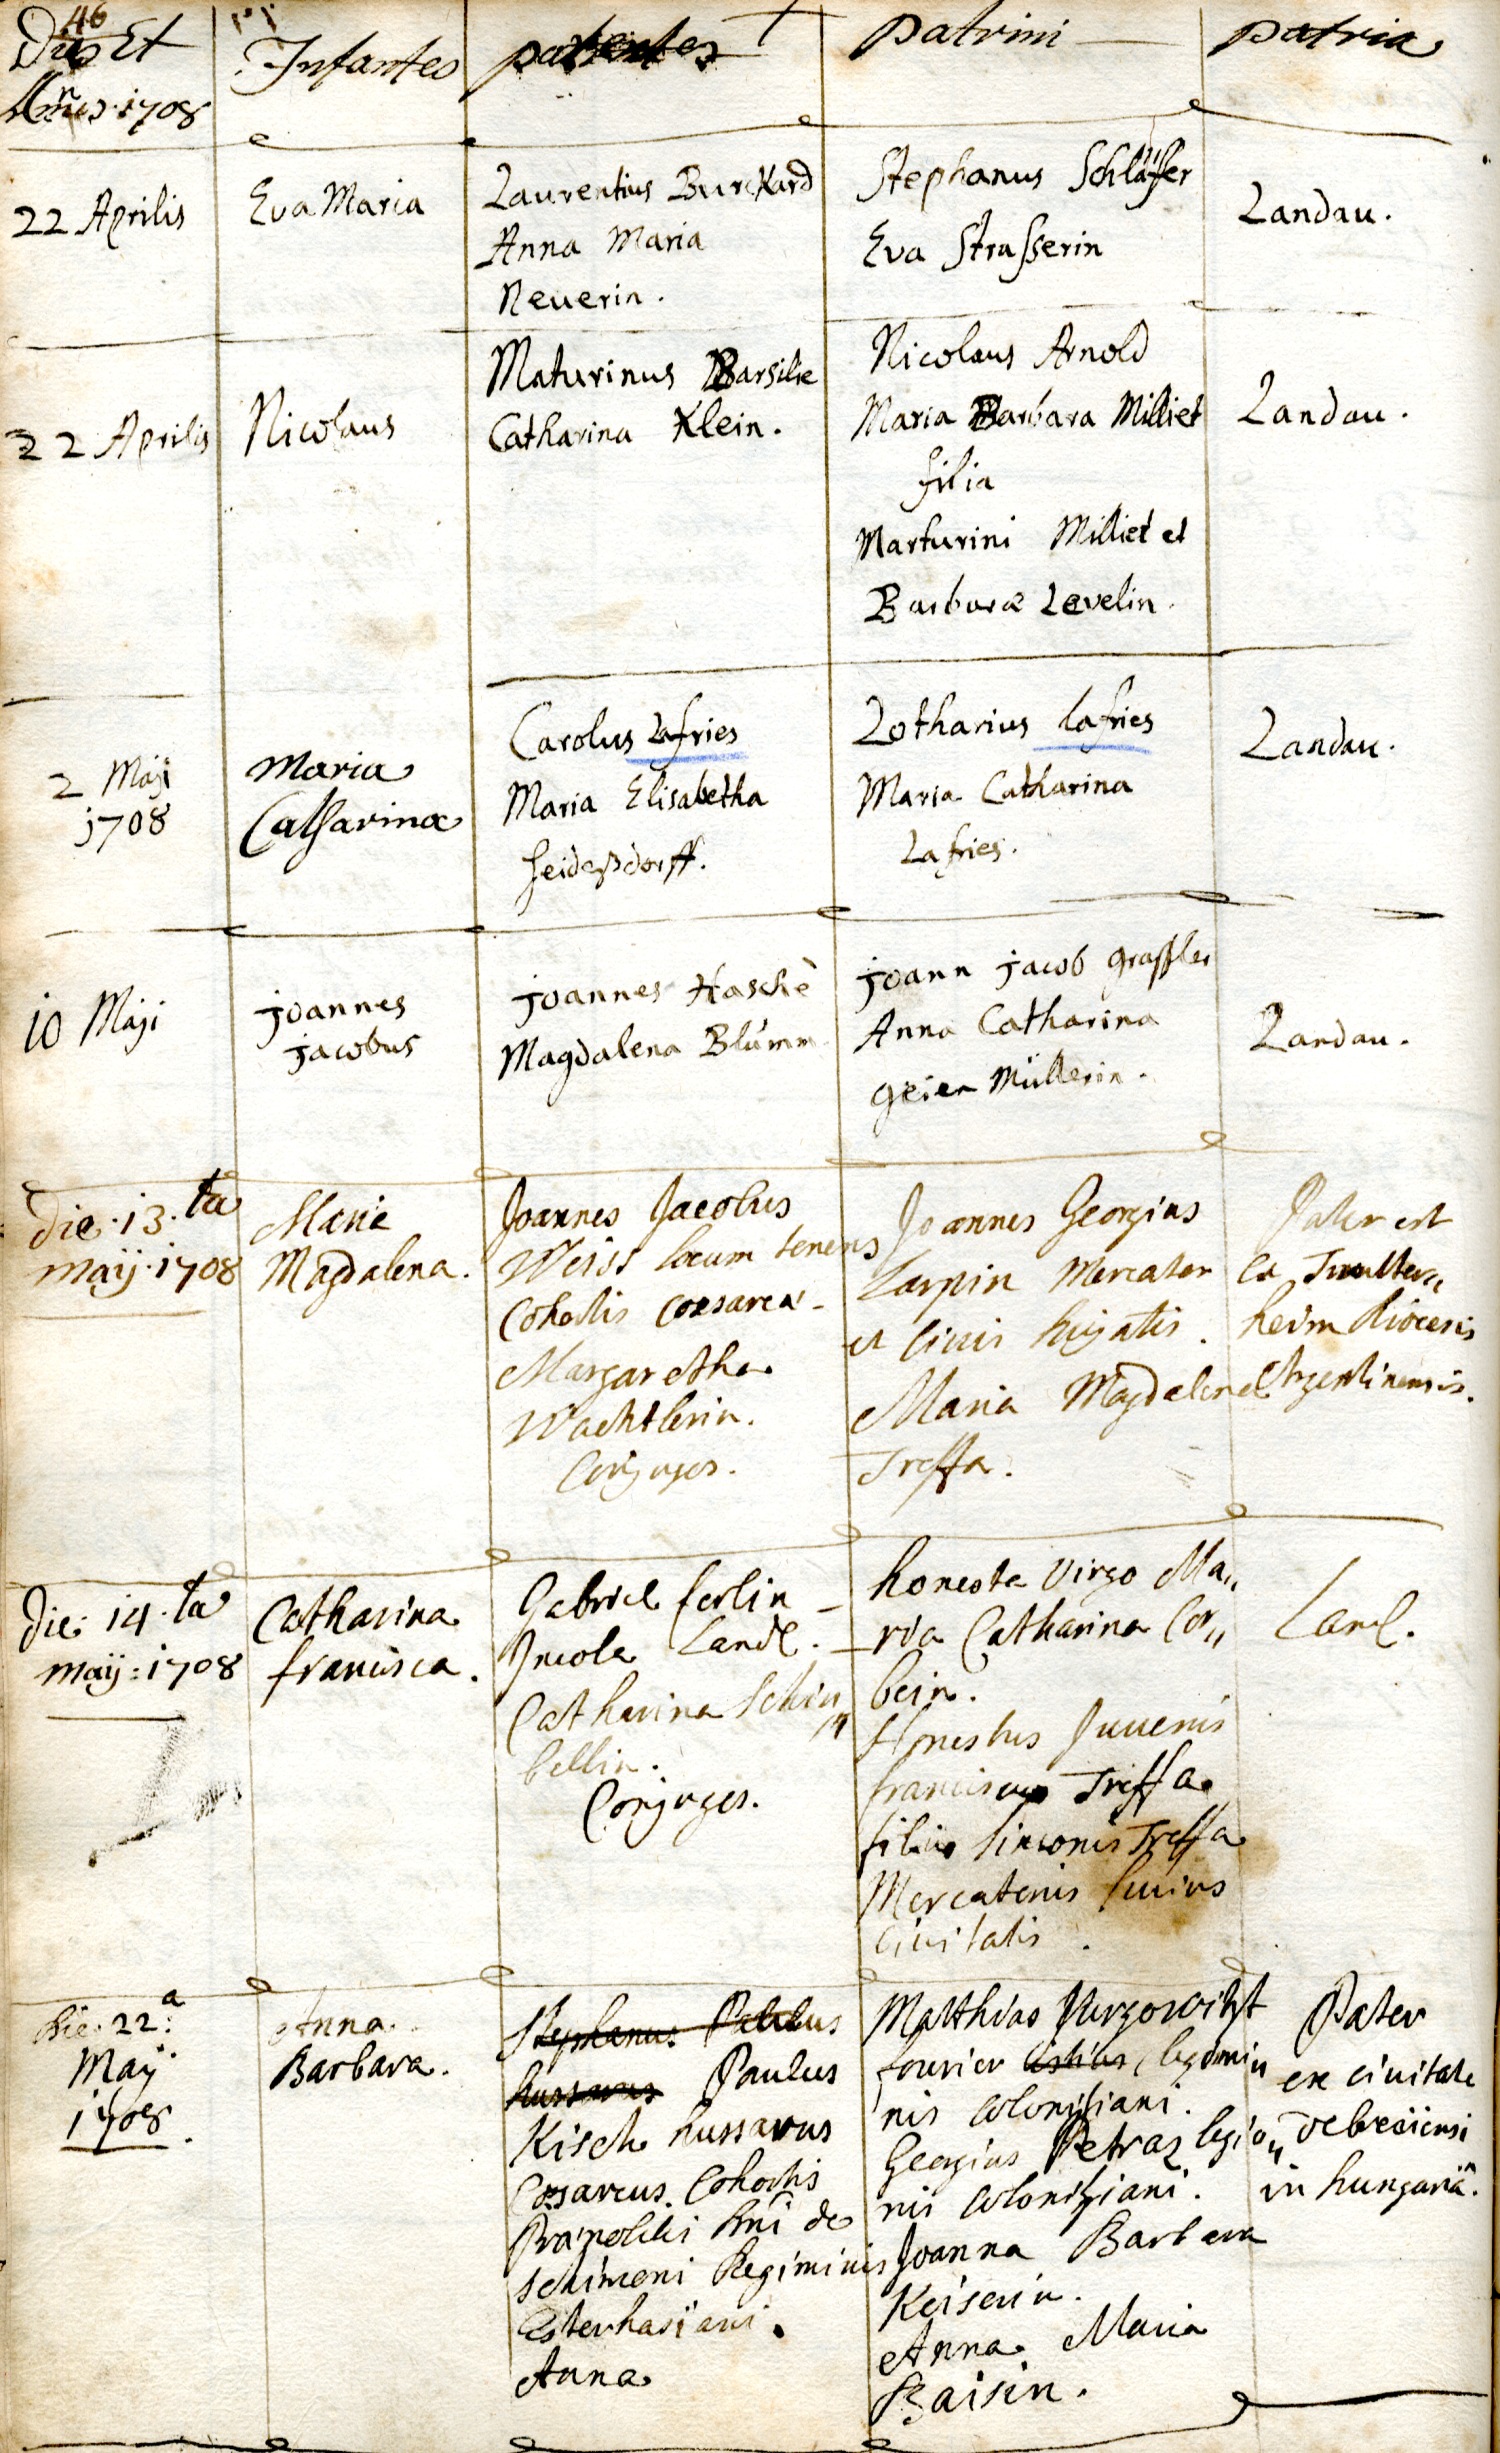 46
Dies Et
Annus 1708
Infantes
parentes
patrini
patria
22 Aprilis
Eva Maria
Laurentius Burckard
Anna Maria
Neuerin.
Stephanus Schläffer
Eva Strasserin
Landau.
22 Aprilis
Nicolaus
Maturinus Barsilie
Catharina Klein.
Nicolaus Arnold
Maria Barbara Milliet
filia
Marturini Milliet et
Barbaræ Levelin.
Landau.
2 Maji
1708
Maria
Catharina
Carolus Lafries
Maria Elisabetha
Heideßdorff.
Lotharius lafries
Maria Catharina
Lafries.
Landau.
10 Maji
joannes
jacobus
joannes Haschè
Magdalena Blúmm
joann jacob graffler
Anna Catharina
geier Müllerin.
Landau.
die 13.ta
maij 1708
Maria
Magdalena.
Joannes Jacobus
Weiss locum tenens
Cohortis Cæsareæ
Margaretha
Wachtlerin.
Conjuges.
Joannes Georgius
Larpin Mercator
et Civis hujatis.
Maria Magdalena
Treffa.
Pater est
heim diocesis
Argentinensis.
die 14.ta
maij: 1708
Catharina
francisca.
Gabriel ferlin
Incola Land.
Catharina Schin„
bellin.
Conjuges.
honesta Virgo Ma„
ria Catharina Cor„
bein.
Honestus Juvenis
franciscus Treffa
filius Simonis Treffa
Mercatoris huius
Civitatis.
Land.
Die 22.a
Maij
1708.
Anna
Barbara.
Stephanus Paulus
hussarus Paulus
Kisch hussarus
Cæsareus Cohortis
de
Regiminis
Esterhasiani.
Anna
Matthias
fourier legio
nis colonitziani.
Georgius Petraz legio„
nis colonitziani.
Joanna Barbara
Keiserin.
Anna Maria
Baisin.
Pater
ex civitate
in hungariâ.